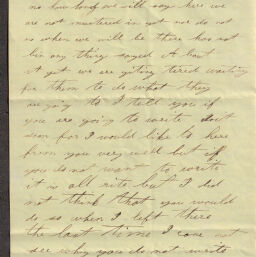 no how long we will stay here we
are not mustered in yet nor do not
no when we will be there has not
bin any thing sayed A bout
it yet we are giting tired waiting
for them to do what they
are going to I tell you if
you are going to write do it
soon for I would like to here
from you very well but if
you do not want to write
it is all rite but I did
not think that you would
do so when I left there
the last time I can not
see why you do not write